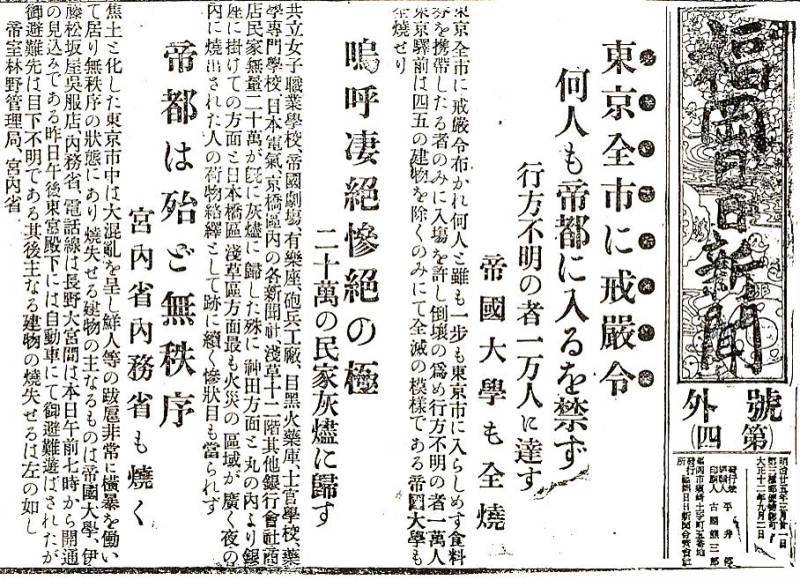 福岡日日新聞
號外
(第四)
大正十二年九月二日
東京全市に戒嚴令
何人も帝都に入るを禁ず
行方不明の者一万人に達す
帝國大學も全燒
東京全市に戒嚴令布かれ何人と雖も一步も東京市に入らしめす食料
を携帶したる者のみに入場を許し倒壞の爲め行方不明の者一萬人
東京驛前は四五の建物を除くのみにて全滅の模樣である帝國大學も
全燒せり
嗚呼凄絕慘絕の極
二十萬の民家灰燼に歸す
共立女子職業學校、帝國劇場、有樂座、砲兵工廠、目黑火藥庫、士官學校、藥
學專門學校、日本電氣、京橋區內の各新聞社、淺草十二階其他銀行會社商
店民家無量二十萬が旣に灰燼に歸した殊に神田方面と丸の內より銀
座に掛けての方面と日本橋區淺草區方面最も火災の區域が廣く夜の
內に燒出された人の荷物絡繹として跡に續く慘狀目も當られず
帝都は殆ど無秩序
宮內省內務省も燒く
焦土と化した東京市中は大混亂を呈し鮮人等の跋扈非常に橫暴を働い
て居り無秩序の狀態にあり燒失せる建物の主なるものは帝國大學、伊
藤松坂屋吳服店、內務省、電話線は長野大宮間は本日午前七時から開通
の見込みである昨日午後東宮殿下には自動車にて御避難遊ばされたが
御避難先は目下不明である其後主なる建物の燒失せるは左の如し
帝室林野管理局、宮內省